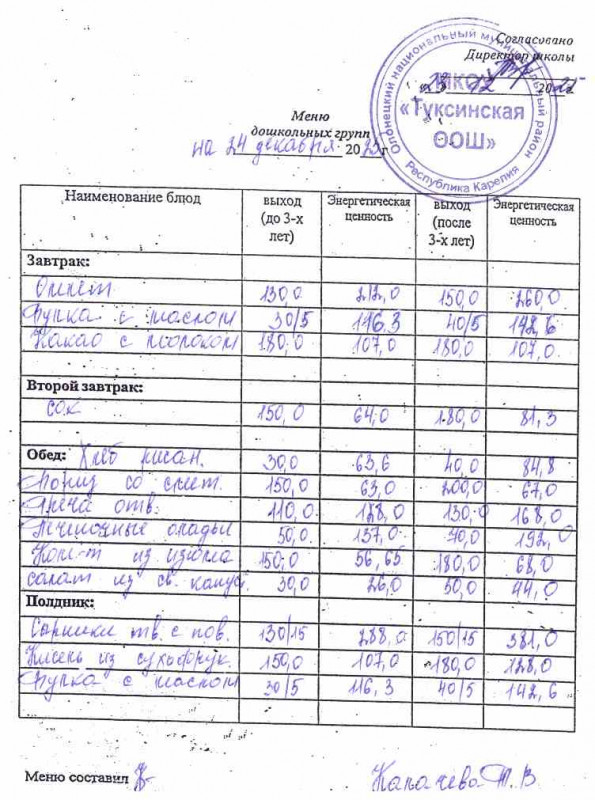 Согласовано
Директор школы
23 12 2025
Олонецкий национальный муниципальный район
МКОУ
«Туксинская
ООШ»
Республика Карелия
Меню
дошкольных групп
на 24 декабря 2025 г
Наименование блюд выход (до 3-х лет) Энергетическая ценность выход (после 3-х лет) Энергетическая ценность
Завтрак:
Омлет 130,0 212,0 150,0 260,0
Булка с маслом 30/5 116,3 40/5 142,6
Какао с молоком 180,0 107,0 180,0 107,0
Второй завтрак:
Сок 150,0 64,0 180,0 81,3
Обед: Хлеб ржан. 30,0 63,6 40,0 84,8
со смет. 150,0 63,0 200,0 67,0
Греча отв. 110,0 128,0 130,0 168,0
Печеночные оладьи 50,0 137,0 70,0 192,0
Комп-т из изюма 150,0 56,65 180,0 68,0
салат из св. капус. 30,0 26,0 50,0 44,0
Полдник:
Сырники тв. с пов. 130/15 288,0 150/15 381,0
Кисель из сухофрук. 150,0 107,0 180,0 128,0
Булка с маслом 30/5 116,3 40/5 142,6
Меню составил Т. В